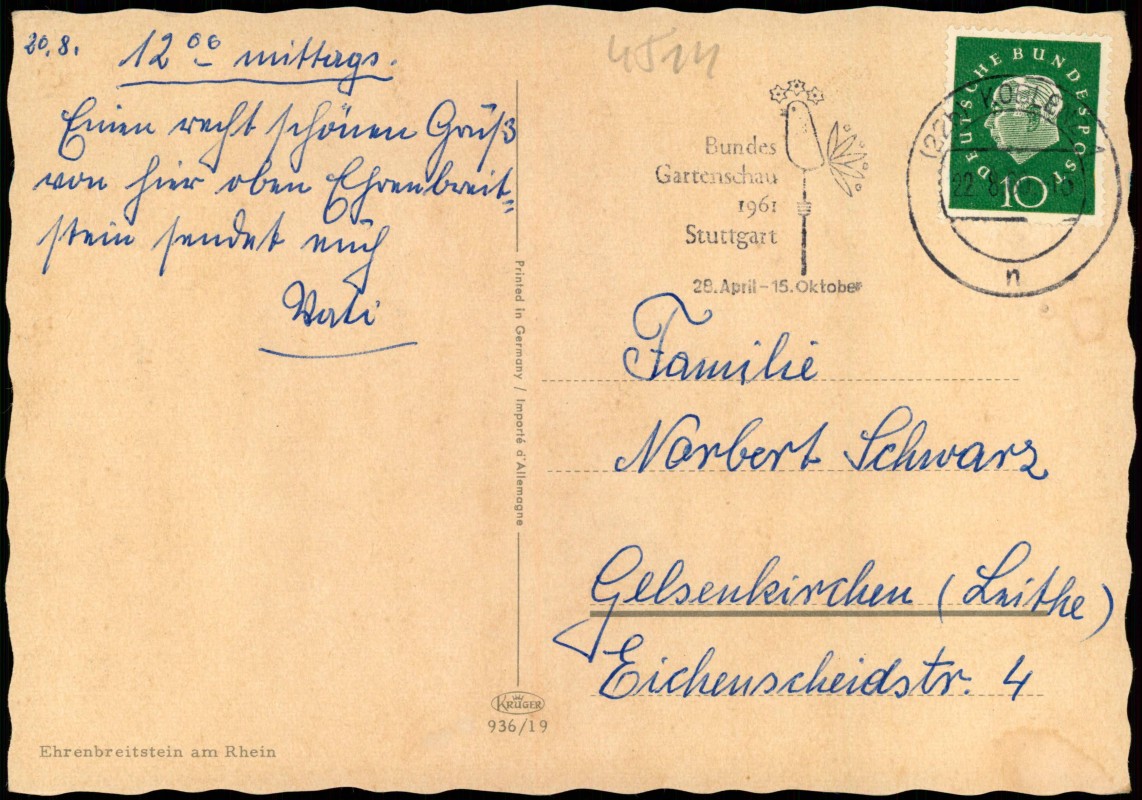 20.8. 12 00 mittags.
Einen recht schönen Gruß
von hier oben Ehrenbreit=
stein sendet euch
Vati
Ehrenbreitstein am Rhein
Printed in Germany / Importé d'Allemagne
KRÜGER
936/19
Bundes
Gartenschau
1961
Stuttgart
28. April – 15. Oktober
DEUTSCHE BUNDESPOST
10
KOBLENZ 1
22.8.60
n
Familie
Norbert Schwarz
Gelsenkirchen (Leithe)
Eichenscheidstr. 4